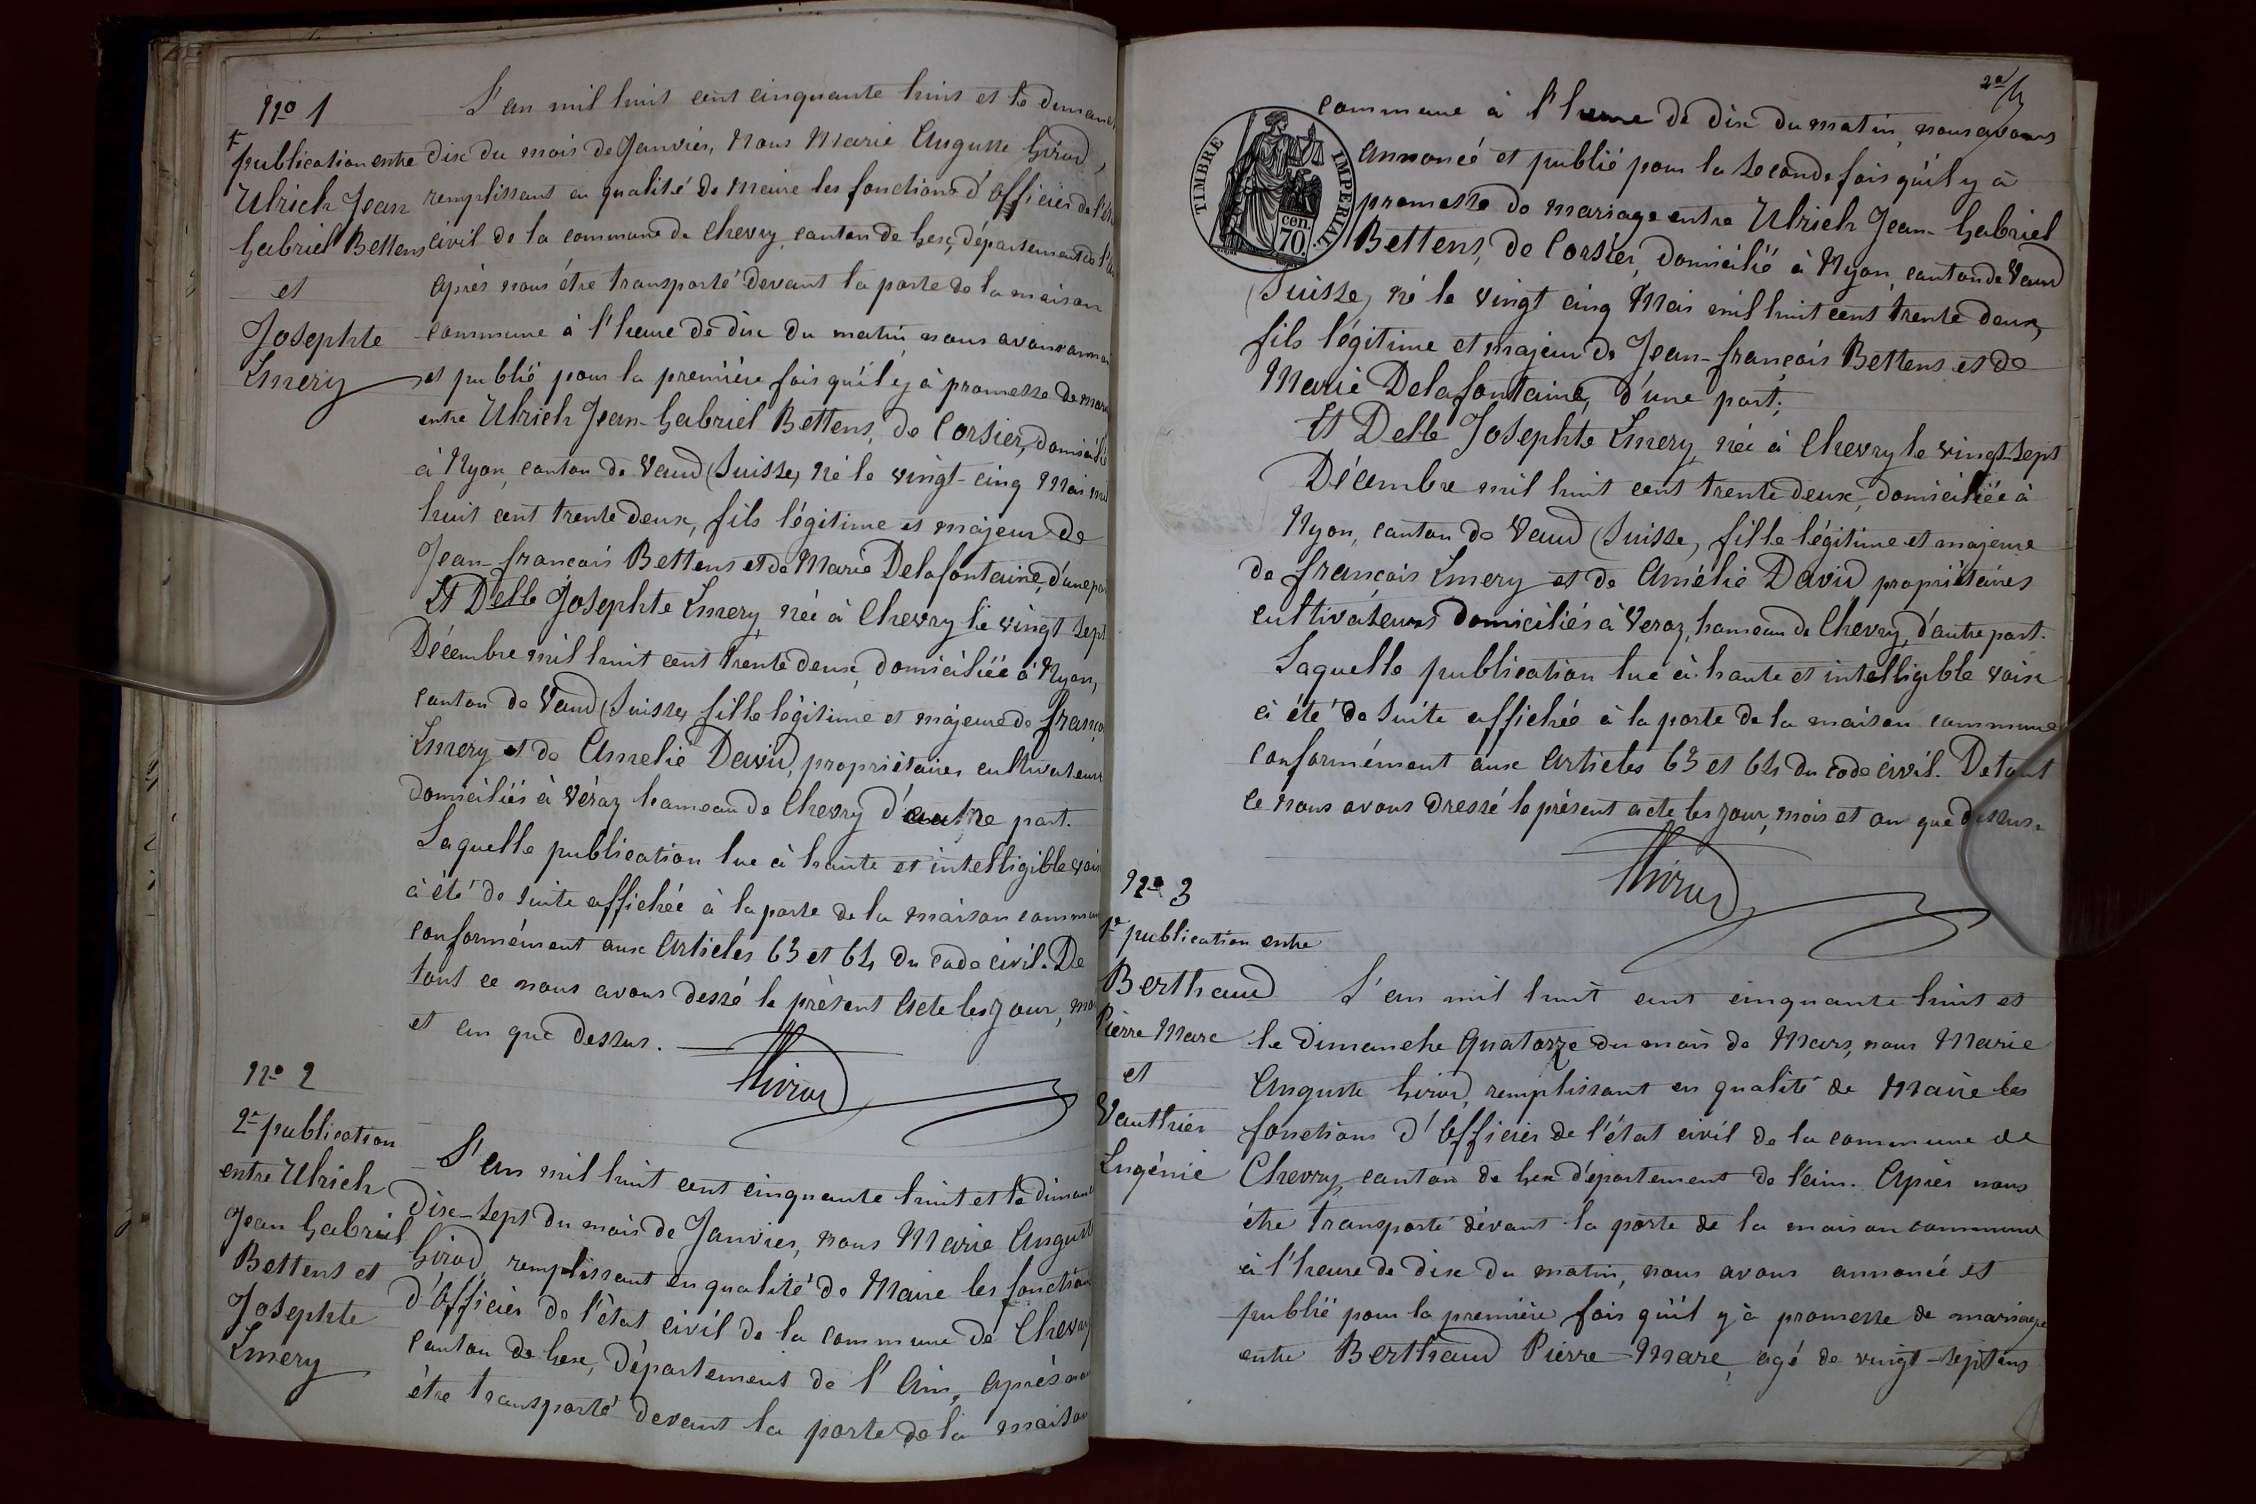 No 1
publication entre
Ulrich Jean
Gabriel Bettens
et
Josephte
Emery
L'an mil huit cent cinquante huit et le
dix du mois de Janvier, Nous Marie Auguste Girod,
remplissant en qualité de Maire les fonctions d'Officier de
civil de la commune de Chevry, canton de Gex, département de
Après nous être transporté devant la porte de la maison
commune à l'heure de dix du matin nous avons
et publié pour la première fois qu'il y à promesse de
entre Ulrich Jean-Gabriel Bettens, de Corsier, domicilié
à Nyon, canton de Vaud (Suisse, né le vingt-cinq Mai
huit cent trente deux, fils légitime et majeur de
Jean-françois Bettens et de Marie Delafontaine, d'une
Et Delle Josephte Emery née à Chevry le vingt sept
Décembre mil huit cent trente deux, domiciliée à Nyon,
canton de Vaud (Suisse, fille légitime et majeure de
Emery et de Amelie David, propriétaires cultivateurs
domiciliés à Véraz hameau de Chevry d'autre part.
Laquelle publication lue à haute et intelligible
à été de suite affichée à la porte de la maison
conformément aux Articles 63 et 64 du code civil. De
tout ce nous avons dessé le présent Acte les jour,
et an que dessus.
Girod
No 2
2e publication
entre Ulrich
Jean Gabriel
Bettens et
Josephte
Emery
L'an mil huit cent cinquante huit et le
dix-sept du mois de Janvier, nous Marie Auguste
Girod, remplissant en qualité de Maire les
d'Officier de l'état civil de la commune de Chevry
canton de Gex, Département de l'Ain, Après
être transporté devant la porte de la maison
TIMBRE IMPERIAL
cen.
70.
commune à l'heure de dix du matin, nous avons
Annoncé et publié pour la seconde fois qu'il y à
promesse de mariage entre Ulrich Jean-Gabriel
Bettens, de Corsier, domicilié à Nyon, canton de Vaud
(Suisse, né le vingt cinq Mai mil huit cent trente deux,
fils légitime et majeur de Jean-françois Bettens et de
Marie Delafontaine, d'une part;
Et Delle Josephte Emery, née à Chevry le vingt-sept
Décembre mil huit cent trente deux, domiciliée à
Nyon, canton de Vaud (Suisse, fille légitime et majeure
de françois Emery et de Amélie David propriétaires
cultivateurs domiciliés à Veraz, hameau de Chevry, d'autre part.
Laquelle publication lue à haute et intelligible voix
à été de suite affichée à la porte de la maison commune
conformément aux Articles 63 et 64 du code civil. De tout
ce nous avons dressé le présent acte les jour, mois et an que dessus.
Girod
No 3
1e publication entre
Berthaud
Pierre Marc
et
Vauthier
Eugénie
L'an mil huit cent cinquante huit et
le dimanche Quatorze du mois de Mars, nous Marie
Auguste Girod, remplissant en qualité de Maire les
fonctions d'Officier de l'état civil de la commune de
Chevry, canton de Gex département de l'ain. Après nous
être transporté dévant la porte de la maison commune
à l'heure de dix du matin, nous avons annoncé et
publié pour la première fois qu'il y à promesse de mariage
entre Berthaud Pierre-Marc, agé de vingt-sept ans